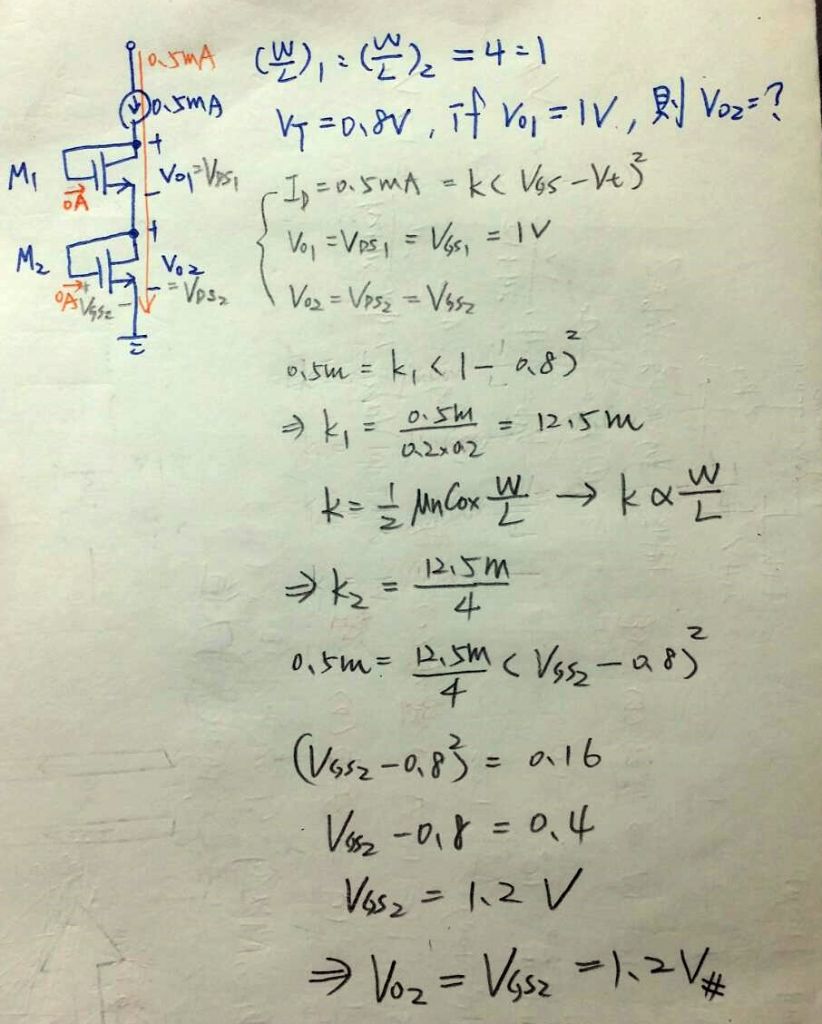 0.5mA
0.5mA
M₁
0A
+
V₀₁=V_DS₁
-
M₂
0A
+
V_GS₂ -
+
V₀₂
- = V_DS₂
(W/L)₁ : (W/L)₂ = 4 : 1
V_T = 0.8V, if V₀₁ = 1V, 則 V₀₂ = ?
I_D = 0.5mA = k(V_GS - Vt)²
V₀₁ = V_DS₁ = V_GS₁ = 1V
V₀₂ = V_DS₂ = V_GS₂
0.5m = k₁(1 - 0.8)²
⇒ k₁ = 0.5m/(0.2×0.2) = 12.5m
k = 1/2 μnCox W/L → k ∝ W/L
⇒ k₂ = 12.5m/4
0.5m = 12.5m/4 (V_GS₂ - 0.8)²
(V_GS₂ - 0.8)² = 0.16
V_GS₂ - 0.8 = 0.4
V_GS₂ = 1.2 V
⇒ V₀₂ = V_GS₂ = 1.2V#